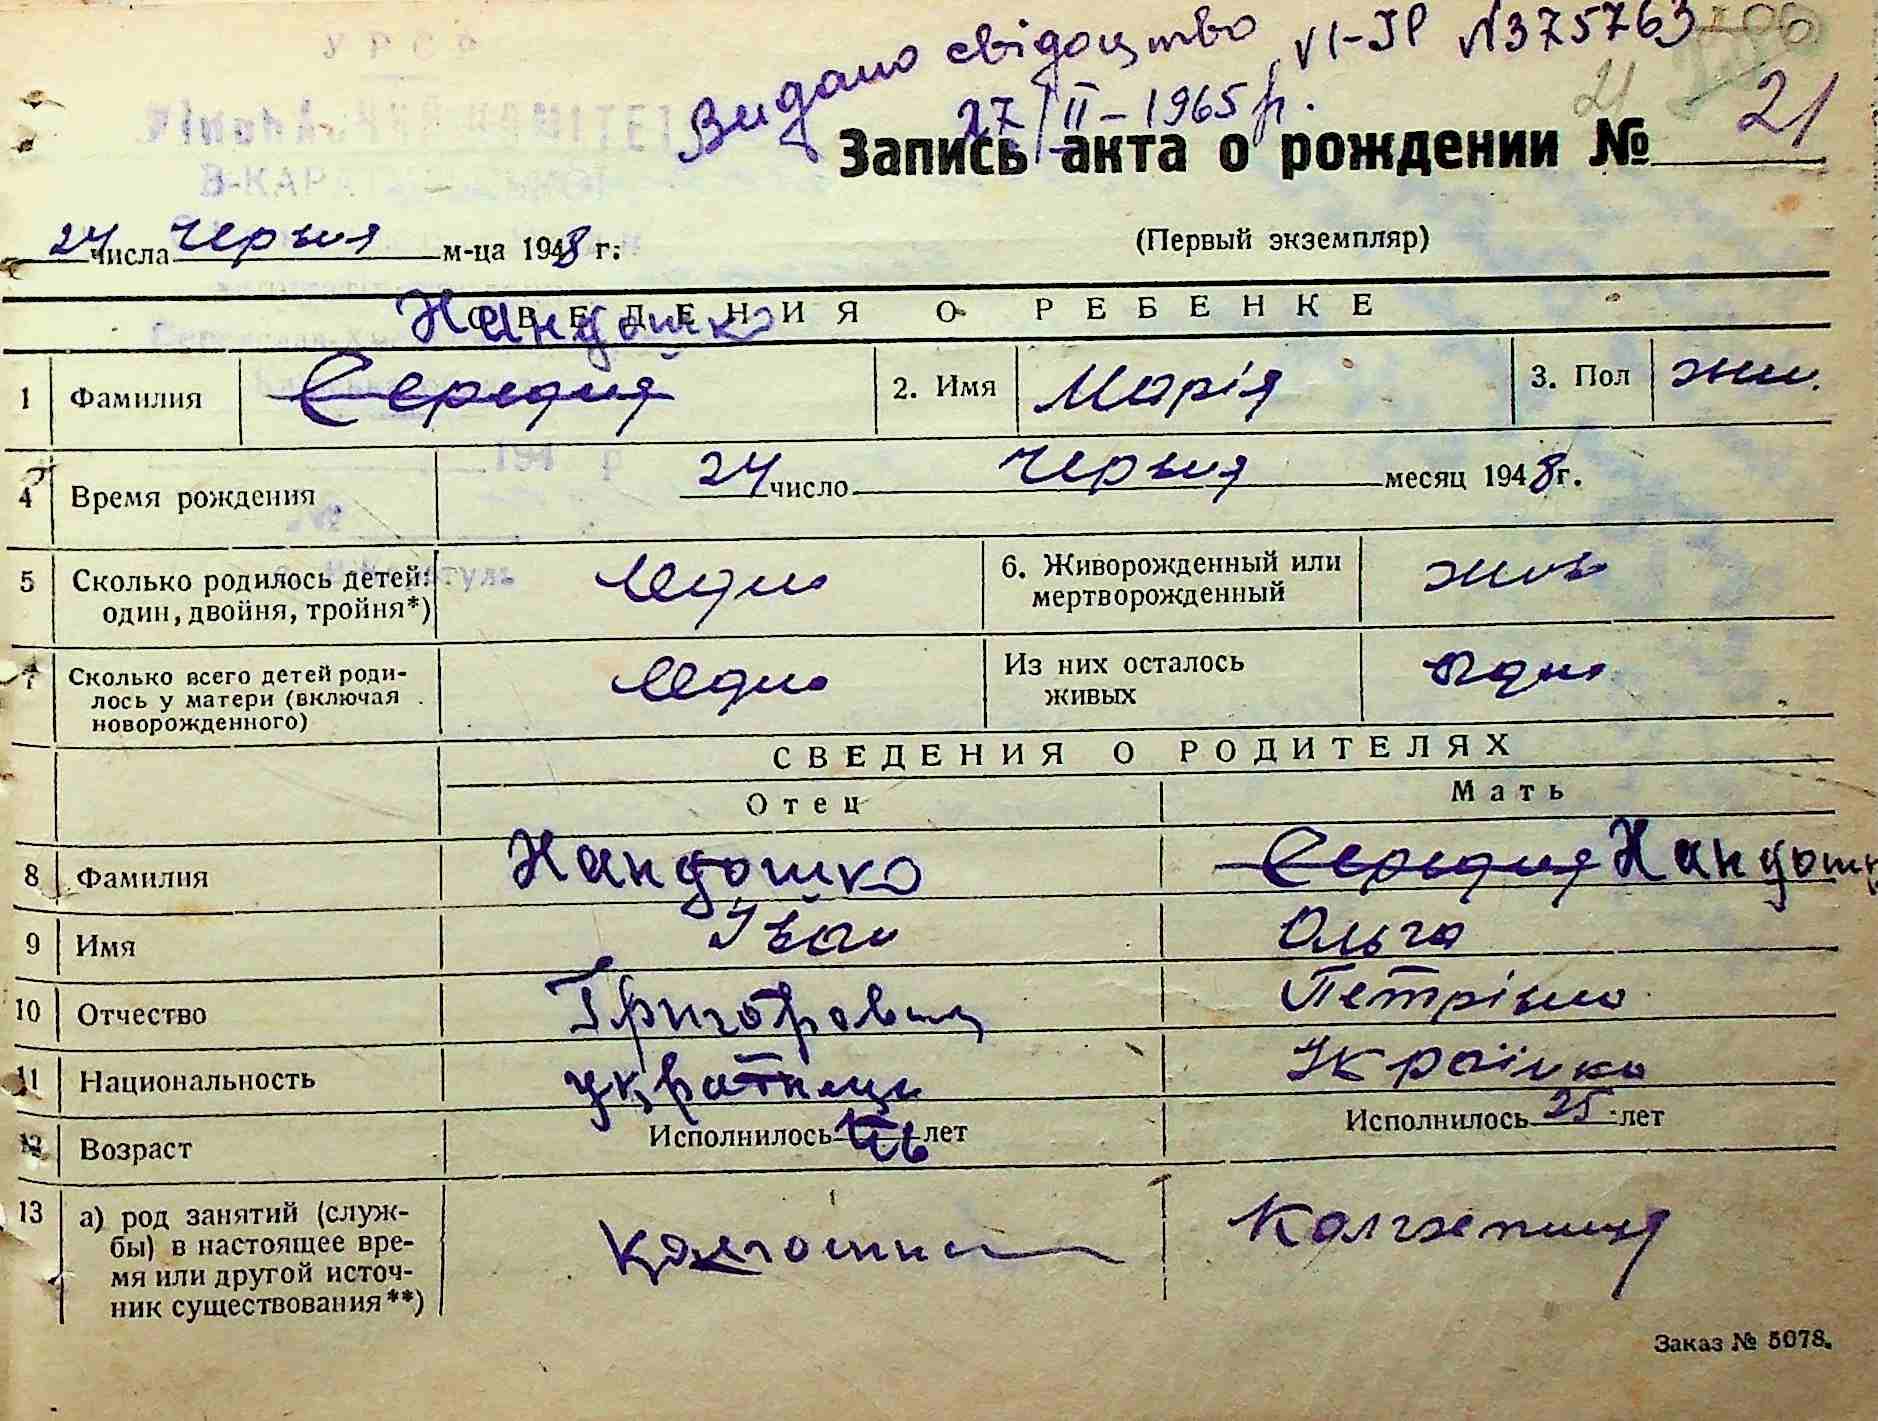 Видано свідоцтво VI-ЗР №375763
27/II-1965 р.
УРСР
КОМІТЕТ
Запись акта о рождении № 21
24 числа червня м-ца 1948 г.
(Первый экземпляр)
СВЕДЕНИЯ О РЕБЕНКЕ
Нандошко
1 Фамилия Середня 2. Имя Марія 3. Пол жін.
4 Время рождения 24 число червня месяц 1948 г.
5 Сколько родилось детей: один, двойня, тройня*) Одно 6. Живорожденный или мертворожденный жив
7 Сколько всего детей родилось у матери (включая новорожденного) Одно Из них осталось живых одно
СВЕДЕНИЯ О РОДИТЕЛЯХ
Отец Мать
8 Фамилия Нандошко Середня Нандошк
9 Имя Іван Ольга
10 Отчество Григорович Петрівна
11 Национальность українець Українка
12 Возраст Исполнилось лет Исполнилось 25 лет
13 а) род занятий (служ-
бы) в настоящее вре-
мя или другой источ-
ник существования**) колгоспник Колгоспниця
Заказ № 5078.